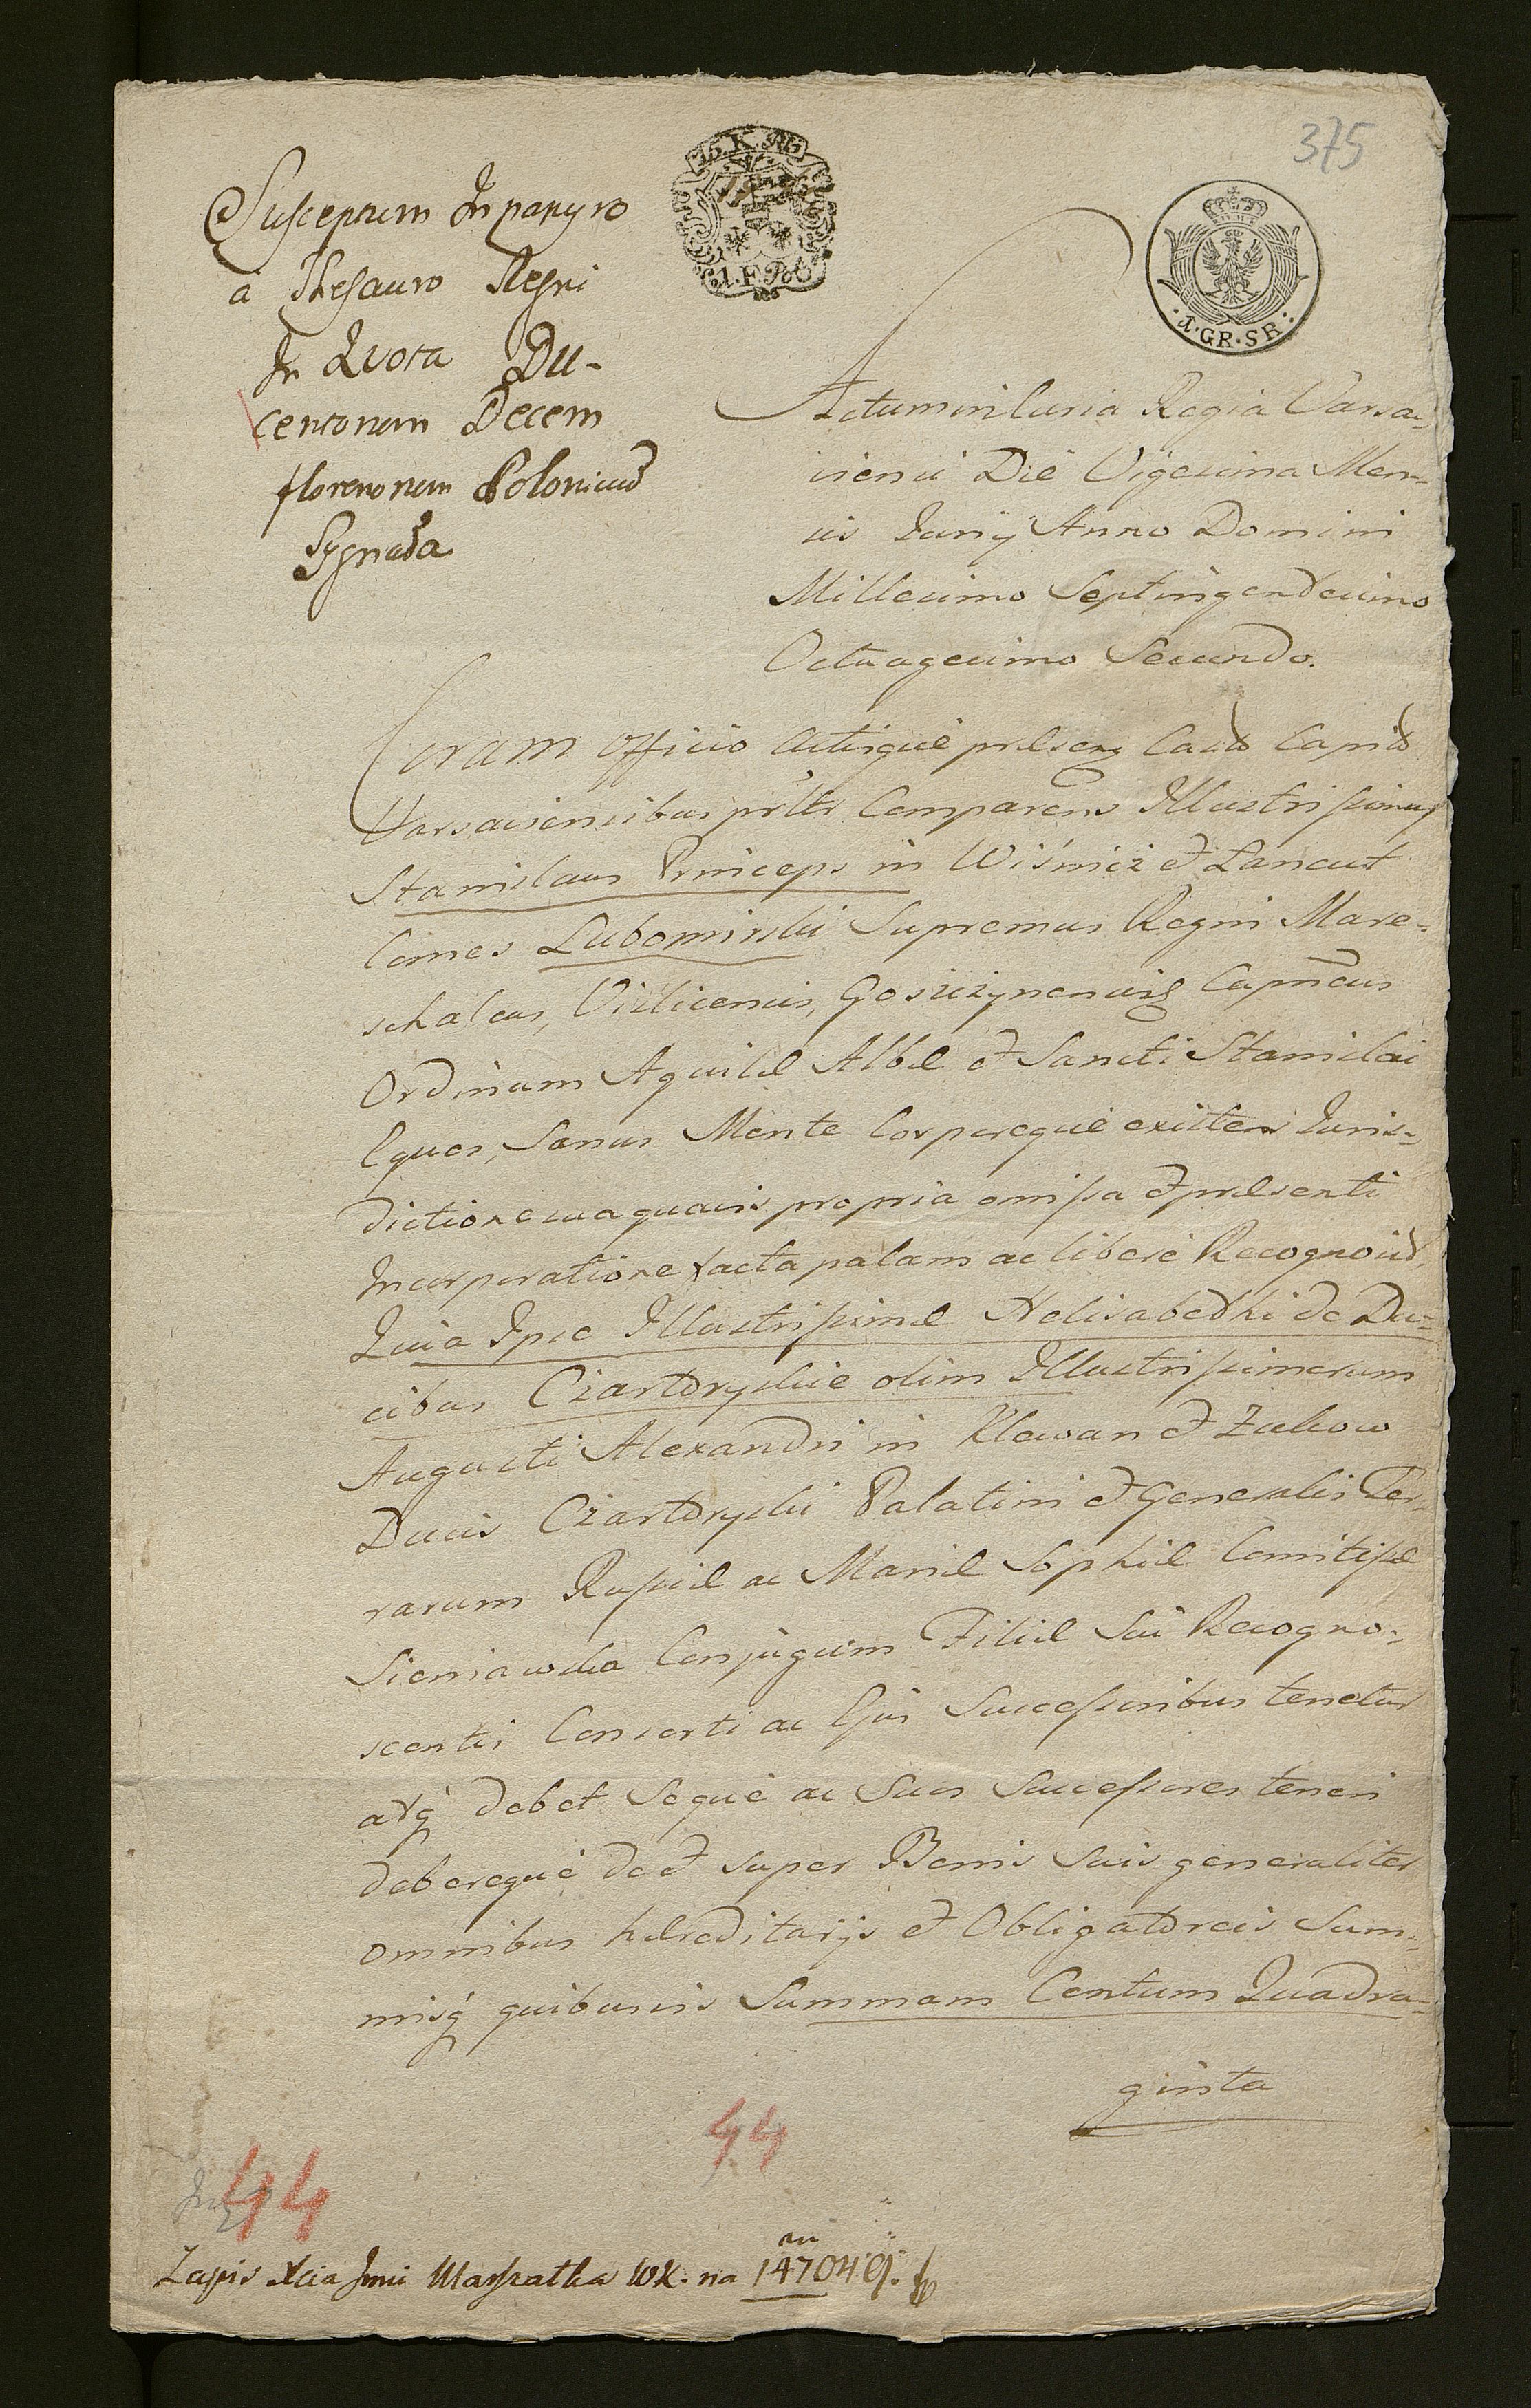 375
15. K.
1. F. Po
1. GR. SR.
Susceptum In papyro
a Thesauro Regni
In Quota Du-
centorum Decem
florenorum Polonical
Sygnata
Actum in Curia Regia Varsa-
viensi Die Vigesima Men-
sis Junÿ Anno Domini
Millesimo Septingentesimo
Octuagesimo Secundo.
Coram Officio Actisque præsen Castr Capit
Varsaviensibus prltr Comparens Illustrissimus
Stanislaus Princeps in Wiśnicz et Lancut
Comes Lubomirski Supremus Regni Mare-
schalcus, Vislicensis, Goszczynensisq Capneus
Ordinum Aquilæ Albæ et Sancti Stanislai
Eques, Sanus Mente Corporeque existens Juris-
dictione sua quavis propria omissa et præsenti
Incorporatione facta palam ac libere Recognovit,
Quia Ipse Illustrissimæ Helisabethi de Du-
cibus Czartoryskie olim Illustrissimorum
Augusti Alexandri in Klewan et Zukow
Ducis Czartoryski Palatini et Generalis Ter-
rarum Russiæ ac Mariæ Sophiæ Comitissæ
Sieniawska Conjugum Filiæ Sui Recogno-
scentis Consorti ac Ejus Successoribus tenetur
atq debet Seque ac Suos Successores teneri
debereque de et super Bonis Suis generaliter
omnibus hæreditarijs et Obligatoreis Sum-
misq quibusvis Summam Centum Quadra-
ginta
44
44
Zapis Xcia Jmci Marszałka WK. na 14704